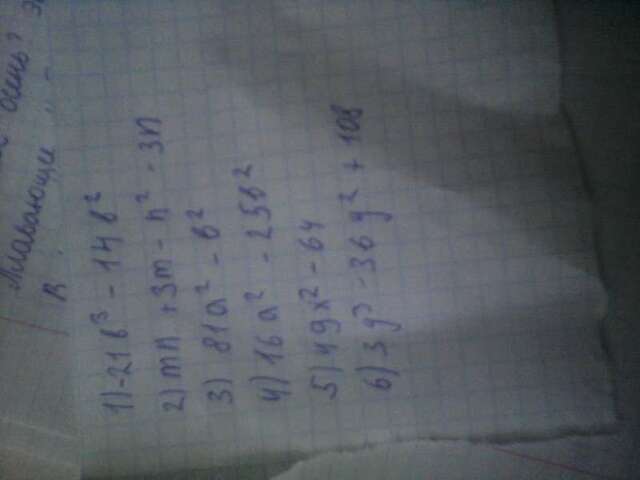 осень?
Плавающи
в
1) -21в³ - 14в²
2) mn + 3m - n² - 3n
3) 81a² - в²
4) 16a² - 25в²
5) 49x² - 64
6) 3y³ - 36y² + 108